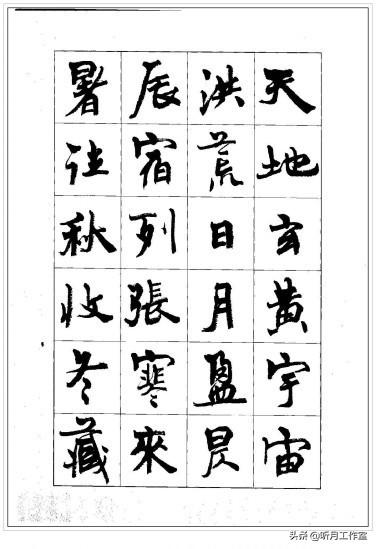 天地玄黄宇宙
洪荒日月盈昃
辰宿列張寒來
暑往秋收冬藏
头条 @听月工作室